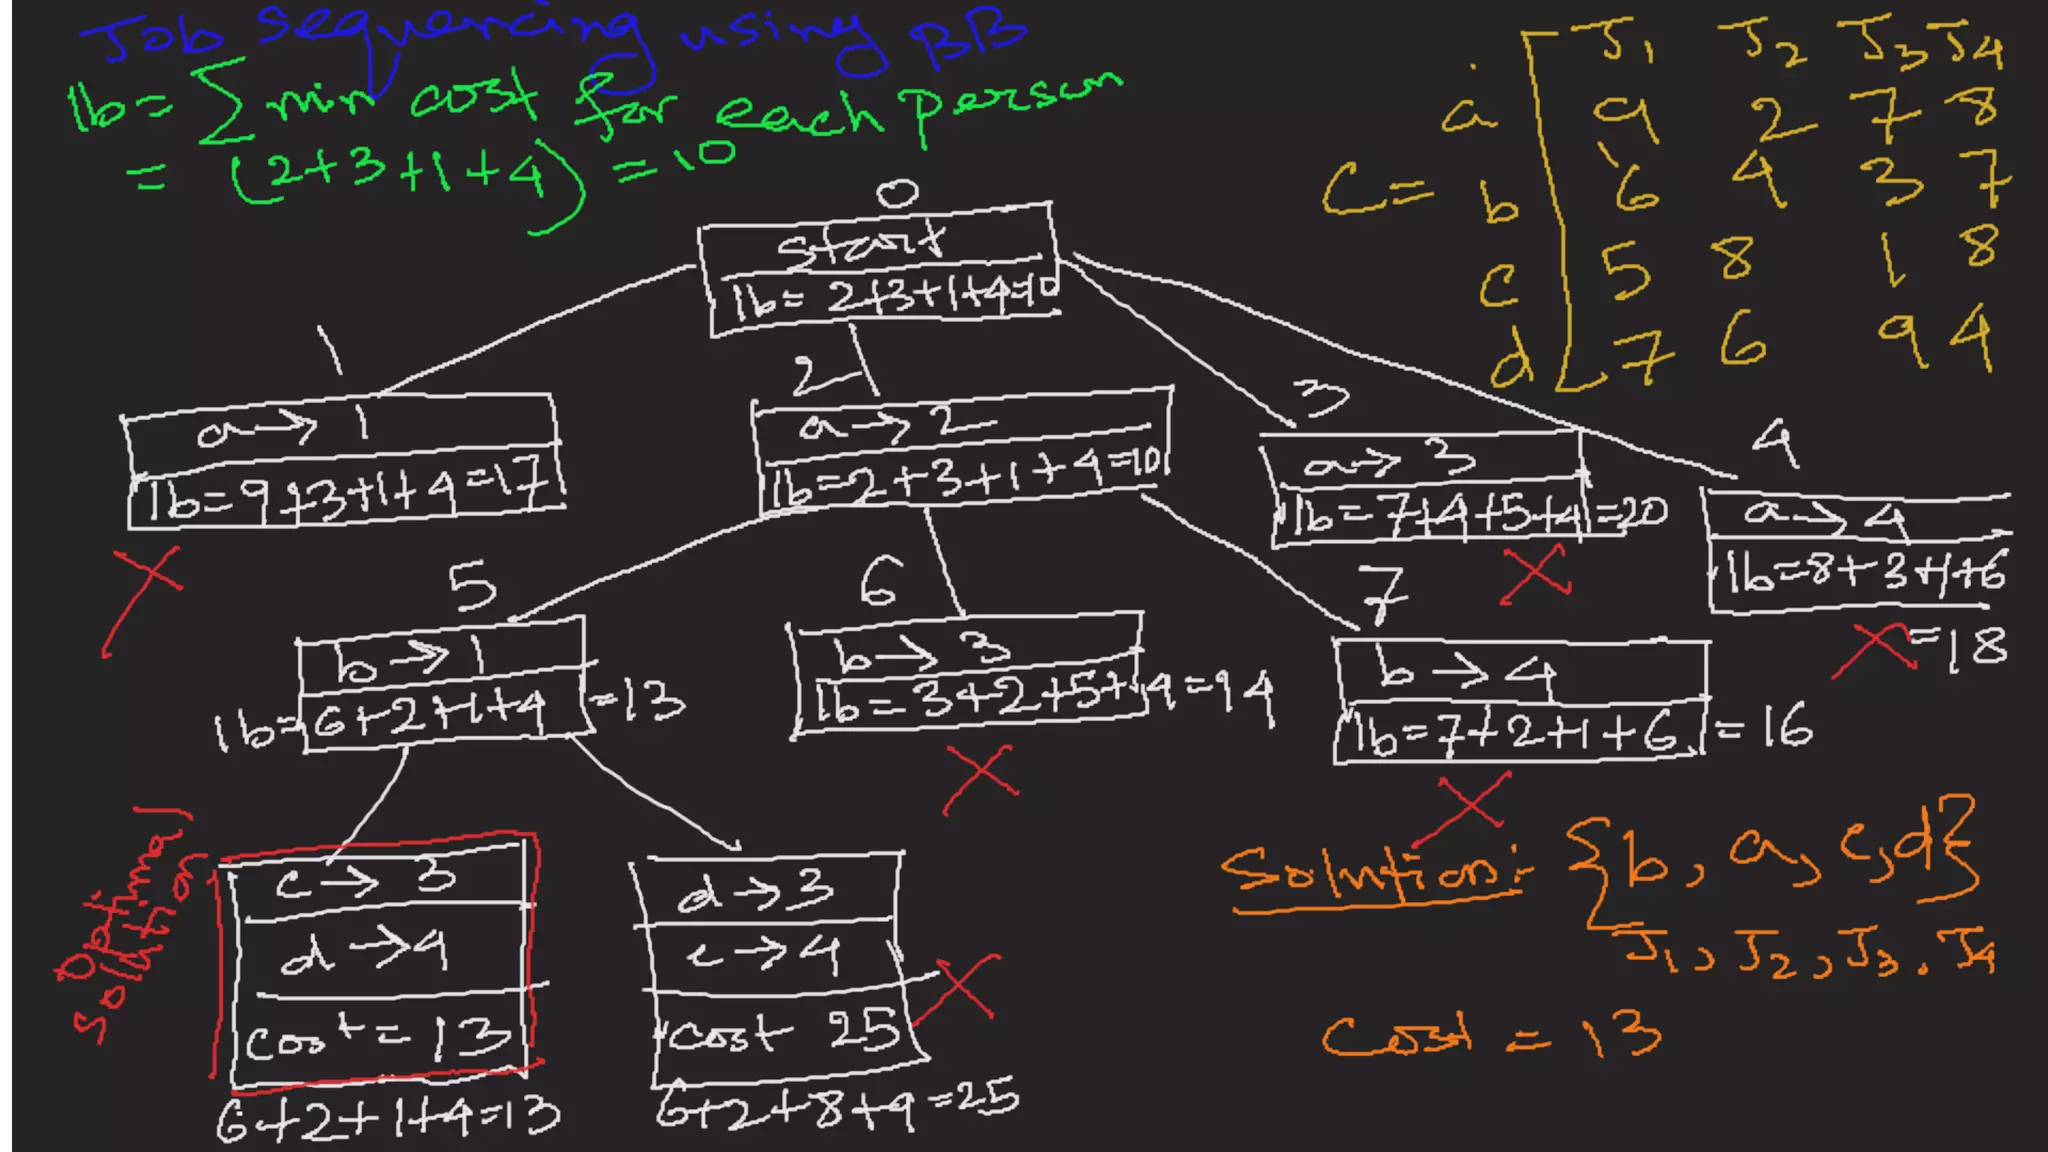 Job sequencing using BB
lb = ∑ min cost for each person
= (2+3+1+4) = 10
J1 J2 J3 J4
a 9 2 7 8
C = b 6 4 3 7
c 5 8 1 8
d 7 6 9 4
0
start
lb = 2+3+1+4=10
1
a → 1
lb = 9+3+1+4=17
2
a → 2
lb = 2+3+1+4=10
3
a → 3
lb = 7+4+5+4=20
4
a → 4
lb = 8+3+1+6
=18
5
b → 1
lb = 6+2+1+4 =13
6
b → 3
lb = 3+2+5+4=94
7
b → 4
lb = 7+2+1+6 = 16
Optimal
solution
c → 3
d → 4
cost = 13
6+2+1+4=13
d → 3
c → 4
cost 25
6+2+8+9=25
Solution:- {b, a, c, d}
J1, J2, J3, J4
Cost = 13